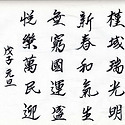 桂域瑞光明
新春和氣生
無窮國運盛
悅樂萬民迎
戊子 元旦